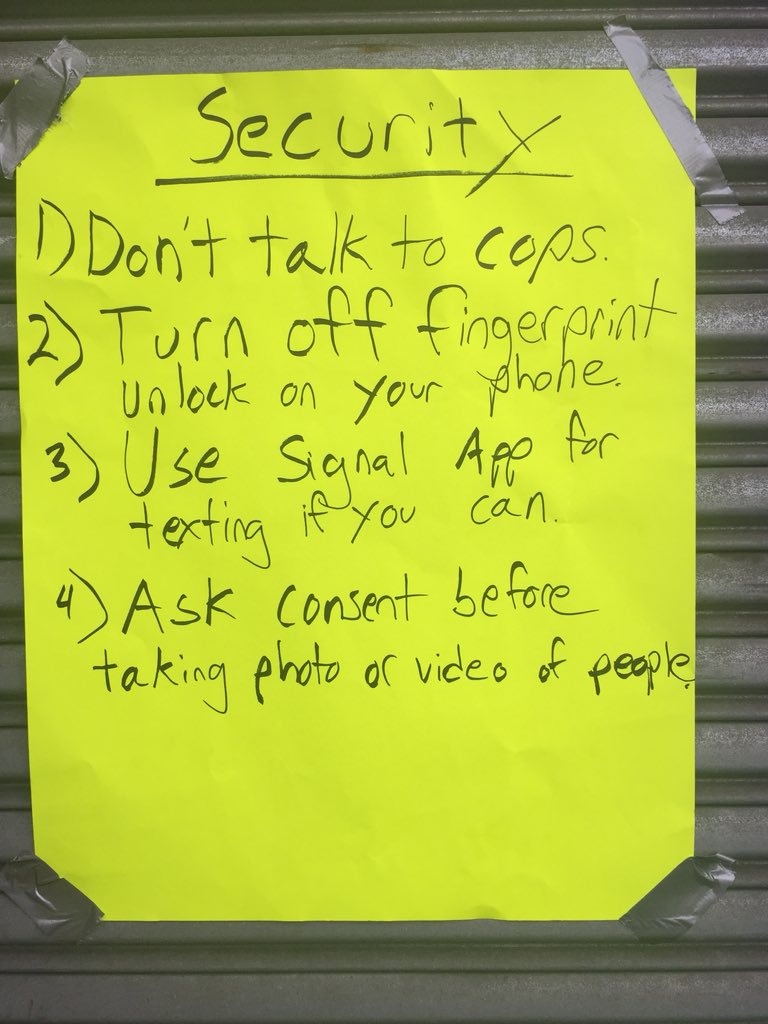 Security
1) Don't talk to cops.
2) Turn off fingerprint
unlock on your phone.
3) Use Signal App for
texting if you can.
4) Ask consent before
taking photo or video of people.